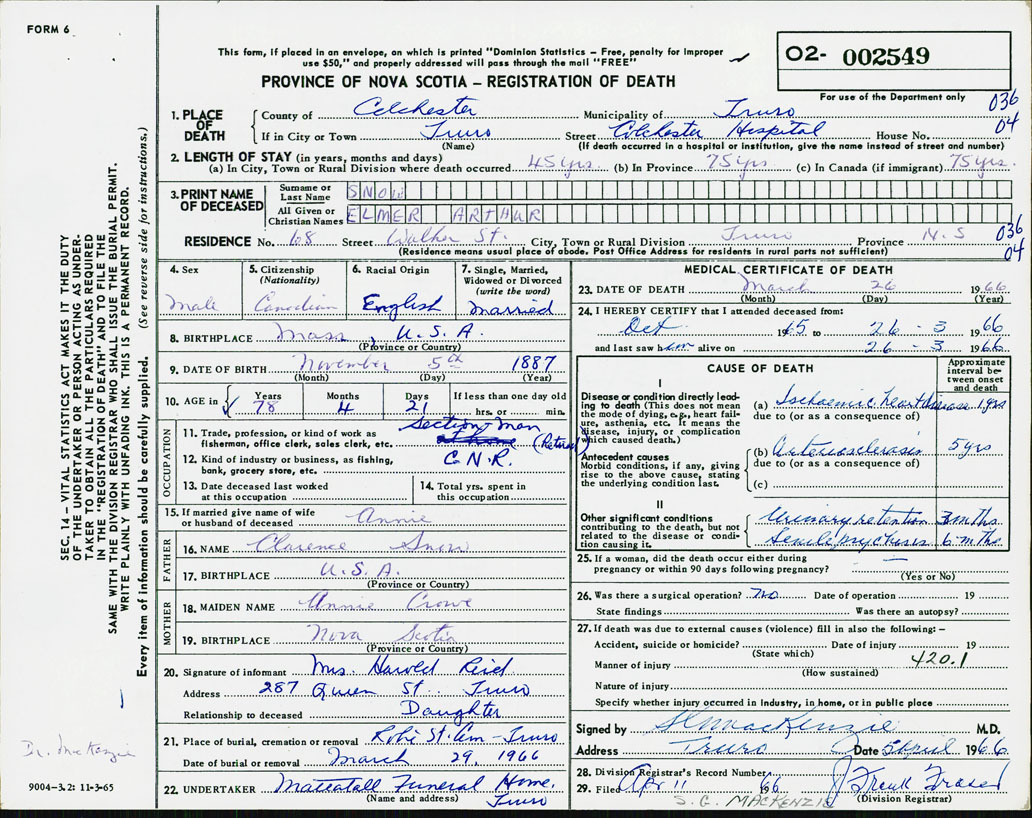 FORM 6
This form, if placed in an envelope, on which is printed "Dominion Statistics – Free, penalty for improper
use $50," and properly addressed will pass through the mail "FREE"
PROVINCE OF NOVA SCOTIA – REGISTRATION OF DEATH
O2- 002549
For use of the Department only
036
04
1. PLACE OF DEATH
County of Colchester Municipality of Truro
If in City or Town Truro Street Colchester Hospital House No.
(Name) (If death occurred in a hospital or institution, give the name instead of street and number)
2. LENGTH OF STAY (in years, months and days)
(a) In City, Town or Rural Division where death occurred 45 yrs. (b) In Province 75 yrs (c) In Canada (if immigrant) 75 yrs.
3. PRINT NAME OF DECEASED
Surname or Last Name SNOW
All Given or Christian Names ELMER ARTHUR
RESIDENCE No. 68 Street Walker St. City, Town or Rural Division Truro Province N.S
036
04
(Residence means usual place of abode. Post Office Address for residents in rural parts not sufficient)
4. Sex
Male
5. Citizenship
(Nationality)
Canadian
6. Racial Origin
English
7. Single, Married,
Widowed or Divorced
(write the word)
Married
8. BIRTHPLACE Mass, U.S.A.
(Province or Country)
9. DATE OF BIRTH November 5th 1887
(Month) (Day) (Year)
10. AGE in Years 78 Months 4 Days 21 If less than one day old
hrs. or min.
OCCUPATION
11. Trade, profession, or kind of work as
fisherman, office clerk, sales clerk, etc. Section-man (Retired)
12. Kind of industry or business, as fishing,
bank, grocery store, etc. C.N.R.
13. Date deceased last worked
at this occupation
14. Total yrs. spent in
this occupation
15. If married give name of wife
or husband of deceased Annie
FATHER
16. NAME Clarence Snow
17. BIRTHPLACE U.S.A.
(Province or Country)
MOTHER
18. MAIDEN NAME Annie Crowe
19. BIRTHPLACE Nova Scotia
(Province or Country)
20. Signature of informant Mrs. Harold Reid
Address 287 Queen St. Truro
Relationship to deceased Daughter
21. Place of burial, cremation or removal Robie St. Cem - Truro
Date of burial or removal March 29, 1966
22. UNDERTAKER Mattatall Funeral Home,
(Name and address) Truro
MEDICAL CERTIFICATE OF DEATH
23. DATE OF DEATH March 26 1966
(Month) (Day) (Year)
24. I HEREBY CERTIFY that I attended deceased from:
Oct 1965 to 26 - 3 1966
and last saw him alive on 26 - 3 1966
CAUSE OF DEATH
Approximate
interval be-
tween onset
and death
I
Disease or condition directly lead-
ing to death (This does not mean
the mode of dying, e.g., heart fail-
ure, asthenia, etc. It means the
disease, injury, or complication
which caused death.)
(a) Ischaemic heart disease 1 yrs
due to (or as a consequence of)
Antecedent causes
Morbid conditions, if any, giving
rise to the above cause, stating
the underlying condition last.
(b) Arteriosclerosis 5 yrs
due to (or as a consequence of)
(c)
II
Other significant conditions
contributing to the death, but not
related to the disease or condi-
tion causing it.
Urinary retention 3 mths
Senile psychosis 6 mths
25. If a woman, did the death occur either during
pregnancy or within 90 days following pregnancy? —
(Yes or No)
26. Was there a surgical operation? no Date of operation 19
State findings Was there an autopsy?
27. If death was due to external causes (violence) fill in also the following: –
Accident, suicide or homicide? Date of injury 19
(State which)
Manner of injury 420.1
(How sustained)
Nature of injury
Specify whether injury occurred in industry, in home, or in public place
Signed by S G MacKenzie M.D.
Address Truro Date April 1966
28. Division Registrar's Record Number
29. Filed Apr 11 1966 J Frank Fraser
S. G. MACKENZIE (Division Registrar)
SEC. 14 – VITAL STATISTICS ACT MAKES IT THE DUTY
OF THE UNDERTAKER OR PERSON ACTING AS UNDER-
TAKER TO OBTAIN ALL THE PARTICULARS REQUIRED
IN THE "REGISTRATION OF DEATH" AND TO FILE THE
SAME WITH THE DIVISION REGISTRAR WHO SHALL ISSUE THE BURIAL PERMIT.
WRITE PLAINLY WITH UNFADING INK. THIS IS A PERMANENT RECORD.
Every item of information should be carefully supplied. (See reverse side for instructions.)
Dr. MacKenzie
9004-3.2: 11-3-65